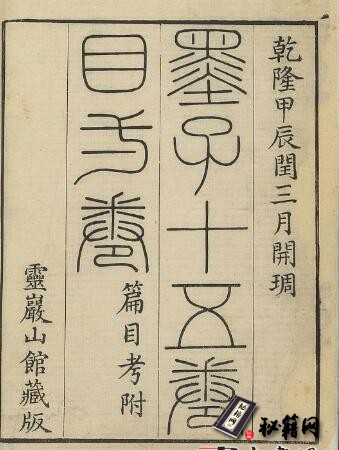 乾隆甲辰閏三月開琱
墨子十五卷
目弌卷
篇目考附
靈巖山館藏版
秘籍网